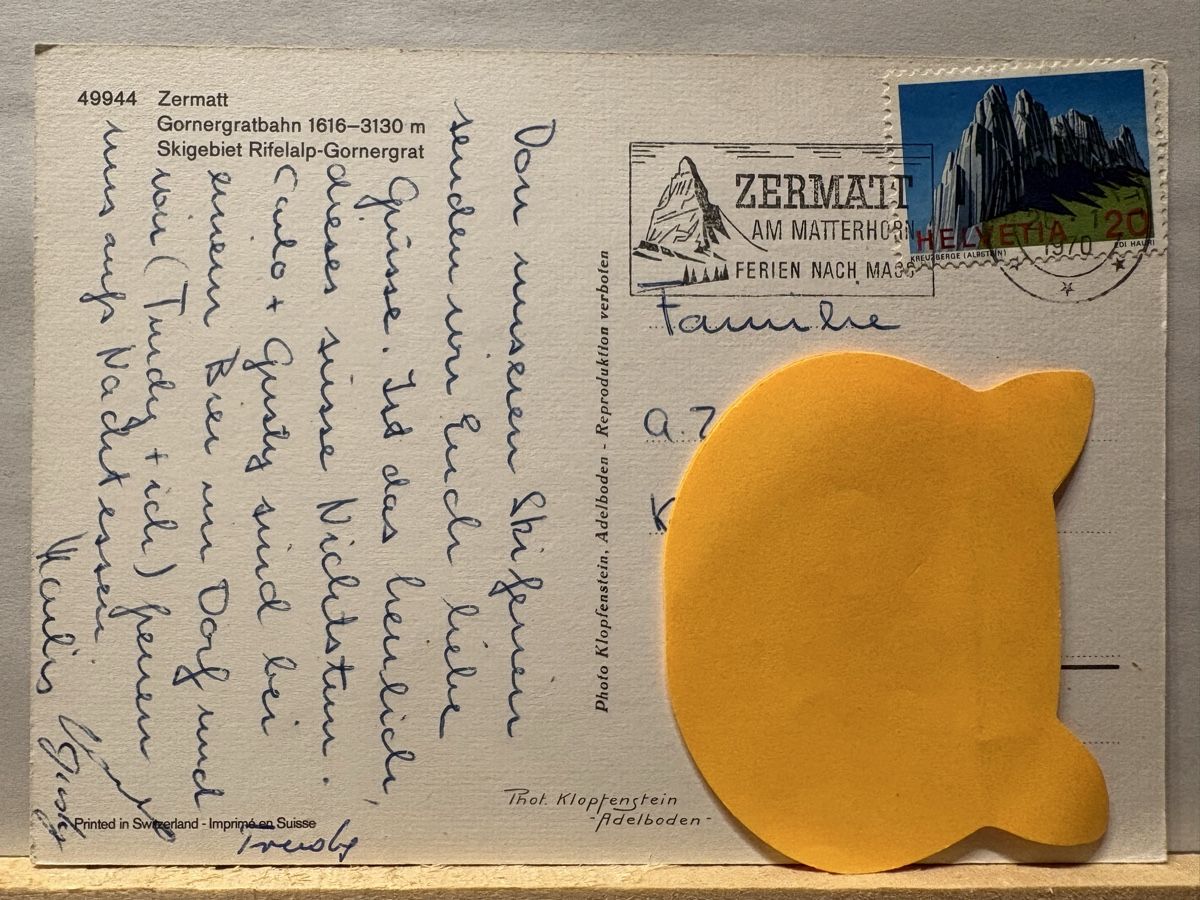 49944 Zermatt
Gornergratbahn 1616–3130 m
Skigebiet Rifelalp-Gornergrat
Von unseren Skiferien
senden wir Euch liebe
Grüsse. Ist das herrlich,
dieses süsse Nichtstun.
Carlo + Gusty sind bei
einem Bier im Dorf und
wir (Trudy + ich) freuen
uns aufs Nachtessen
Marlis
Gusty
Trudy
Printed in Switzerland - Imprimé en Suisse
Photo Klopfenstein, Adelboden - Reproduktion verboten
Phot. Klopfenstein
- Adelboden -
ZERMATT
AM MATTERHORN
FERIEN NACH MASS
HELVETIA 20
KREUZBERGE (ALPSTEIN)
EDI HAURI
1970
Familie
a. Z
K